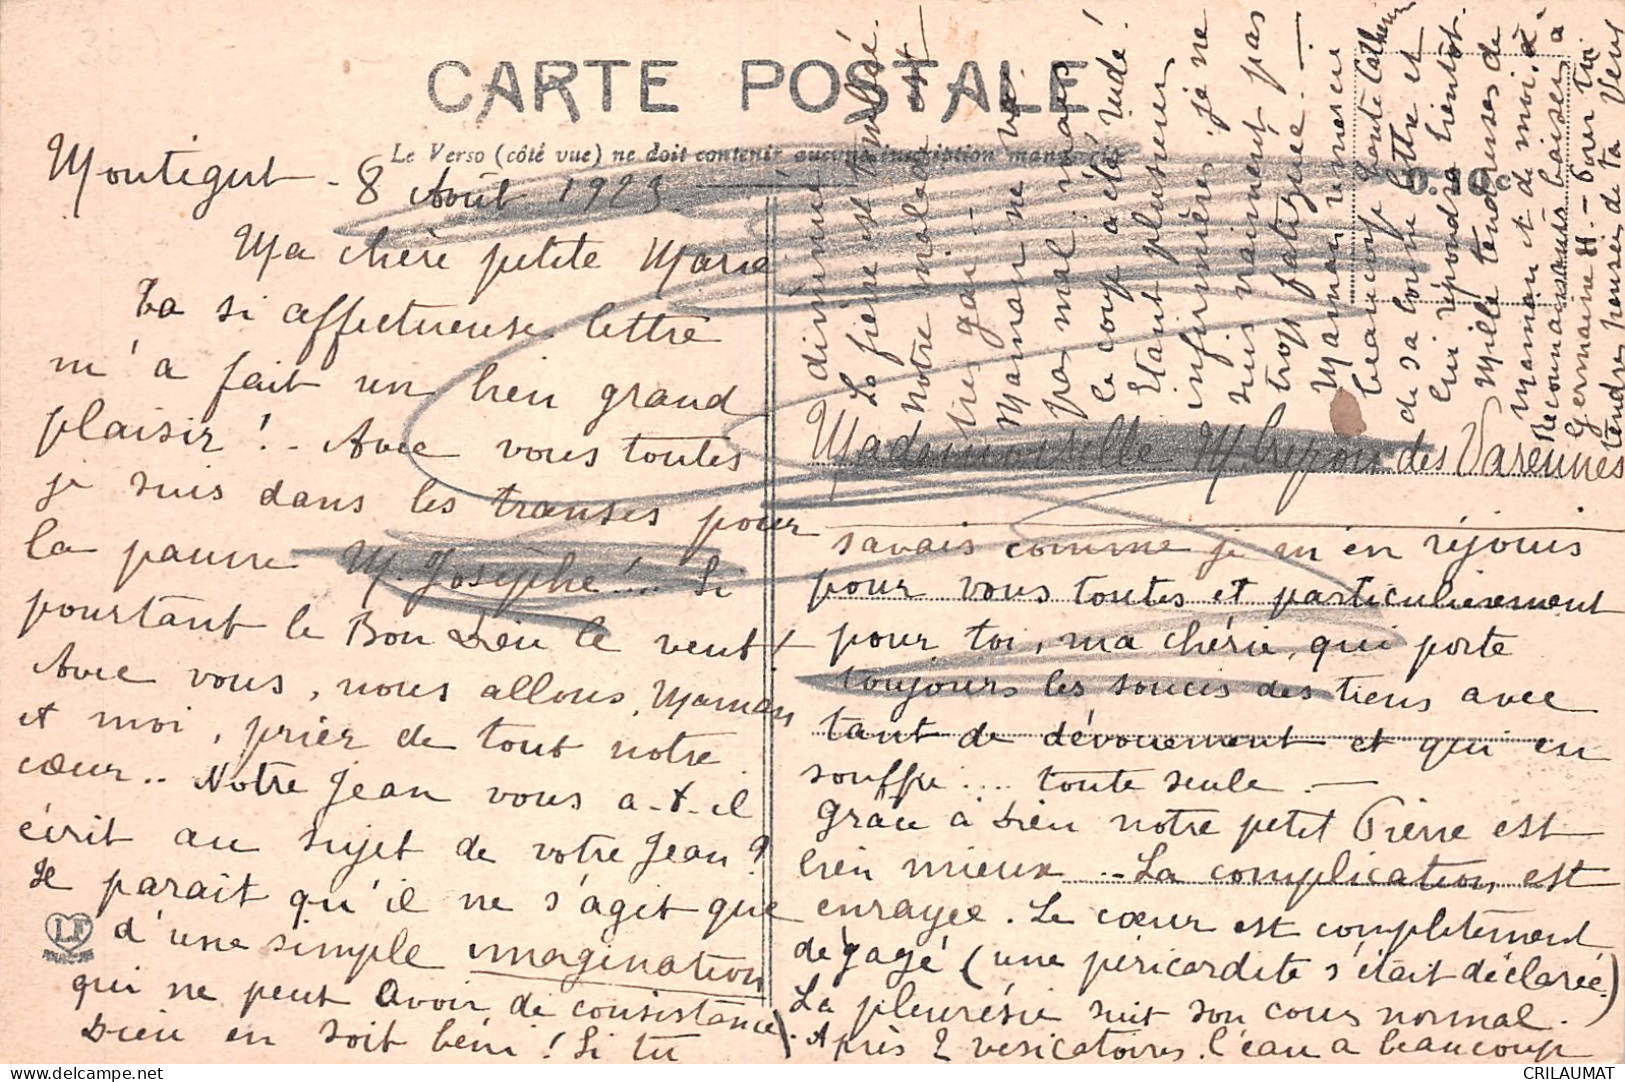 CARTE POSTALE
Le Verso (côté vue) ne doit contenir aucune inscription manuscrite
Montigut - 8 Août 1923
Ma chère petite Marie
Ta si affectueuse lettre
m'a fait un bien grand
plaisir ! - Avec vous toutes
je suis dans les transes pour
la pauvre M. Josèphe !... Si
pourtant le Bon Dieu le veut !
Avec vous, nous allons, Maman
et moi, prier de tout notre
cœur.. Notre Jean vous a-t-il
écrit au sujet de votre Jean ?
Il parait qu'il ne s'agit que
d'une simple imagination
qui ne peut avoir de consistance.
Dieu en soit béni ! Si tu
LF
Mademoiselle M. des Varennes
savais comme je m'en réjouis
pour vous toutes et particulièrement
pour toi, ma chérie, qui porte
toujours les soucis des tiens avec
tant de dévouement et qui en
souffre .... toute seule. -
Grâce à Dieu notre petit Pierre est
bien mieux .. La complication est
enrayée. Le cœur est complètement
dégagé (une péricardite s'était déclarée)
La pleurésie suit son cours normal.
Après 2 vésicatoires l'eau a beaucoup
diminué
La fièvre est
notre malade est
très gai -
Maman ne va
pas mal mais
le coup a été rude !
Etant plusieurs
infirmières je ne
suis vraiment pas
trop fatiguée. -
Maman remercie
beaucoup tante
de sa bonne lettre et
lui répondra bientôt.
Mille tendresses de
maman et de moi à
Reconnaissants baisers à
Germaine H. - Pour toi
tendre pensée de ta Vens
0.10c
CRILAUMAT